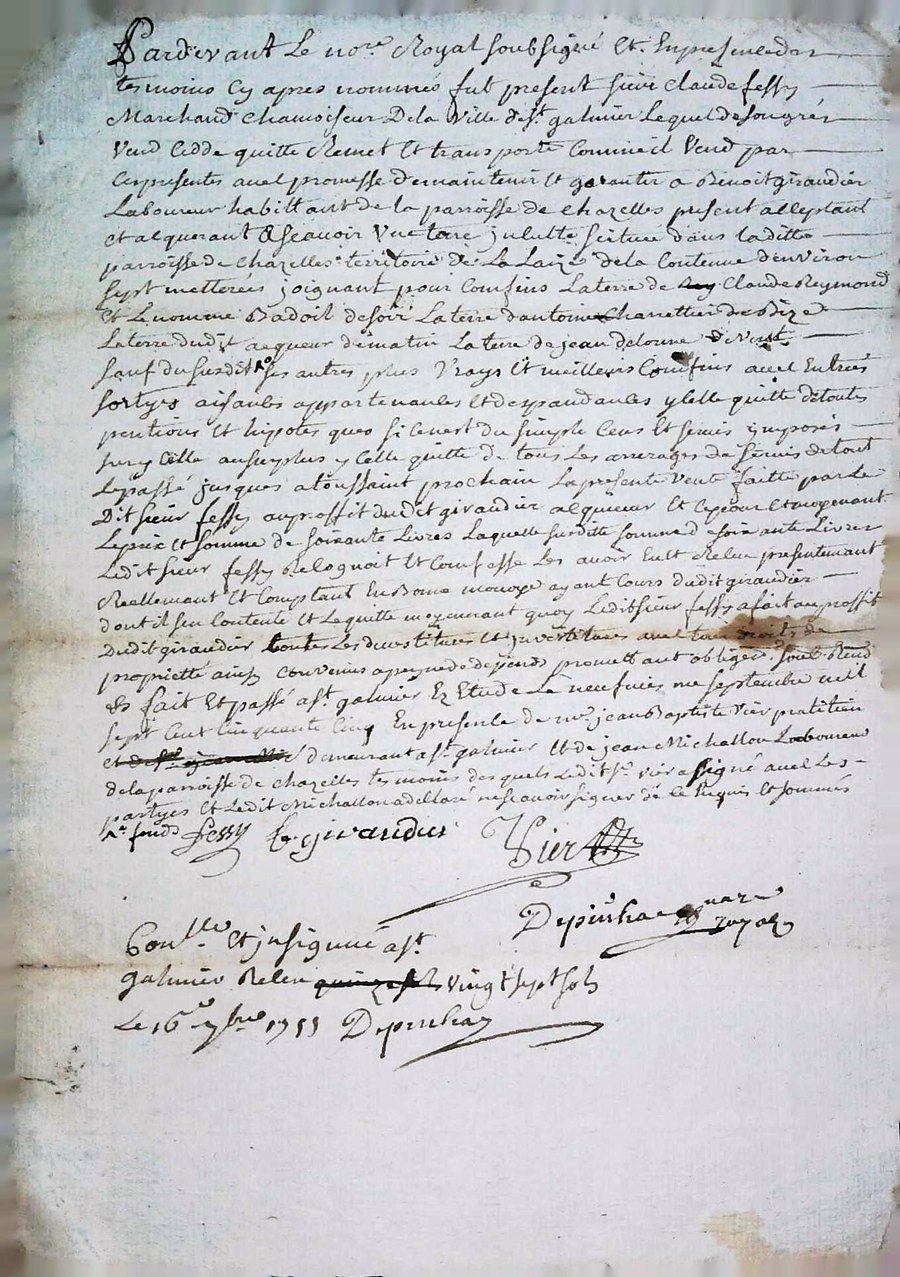 Pardevant Le nore Royal soubsigné Et En presence des
tesmoins Cy apres nommés fut present sieur Claude fessy
Marchand Chamoiseur De la Ville de st galmier Lequel de son gré
Vend Cedde quitte Remet Et transporte Comme il Vend par
Ces presentes avec promesse de maintenir Et garantir a Benoit giraudier
Laboureur habittant de la parroisse de Chazelles present acceptant
et aquerant a scavoir Une terre situee dans laditte
parroisse de Chazelles territoire de La de la Contenue d'environ
sept metterees joignant pour Comfins La terre de Claude Reymond
Et Le nommé Badoil de soir La terre d'antoine Charrettier de Bize
La terre dudit aequeur de matin La terre de jean delorme de Vent
sauf du susdit ses autres plus Vrays Et meilleurs Comfins avec Entrées
sortyes aisances appartenances Et despandances ycelle quitte de toutes
pentions Et hipoteques si ce n'est du simple Cens Et servis imposés
sur yCelle au surplus yCelle quitte de tous Les arrerages de servis de tout
Le passé jusques a toussaint prochain La presente Vente faitte par Le
Dit sieur fessy au proffit dudit giraudier aequeur Et Ce pour Et moyenant
Le prix Et somme de soixante Livres Laquelle susditte somme de soixante Livres
Ledit sieur fessy Reconoit Et Comfesse Les avoir Eu Et Receu presentement
Reellemant Et Comptant En Bonne monoye ayant Cours dudit giraudier
dont il s'en Contente Et La quitte moyennant quoy Ledit sieur fessy a fait au proffit
Dudit giraudier toutes Les devestitures Et jnvestitures avec tous droits de
proprietté ainsy Convenus a peyne de depends promettant obligeant soub. Renon
&s fait Et passé a st galmier Ez Etude Le neufvieme septembre mil
sept Cent Cinquante Cinq En presence de mre jean Baptiste Vier pratitien
et demeurant a st galmier Et de jean Michallon Laboureur
de la parroisse de Chazelles tesmoins desquels Ledit sr Vier a signé avec Les
partyes Et Ledit Michallon a declaré ne scavoir signer de ce Requis Et sommés
fonds Fessy b. giraudier Vier
Depinhac nore Royal
Conlle Et jnsignué a st
galmier Receu vingt sept sols
Le 16e 7bre 1755 Depinhac